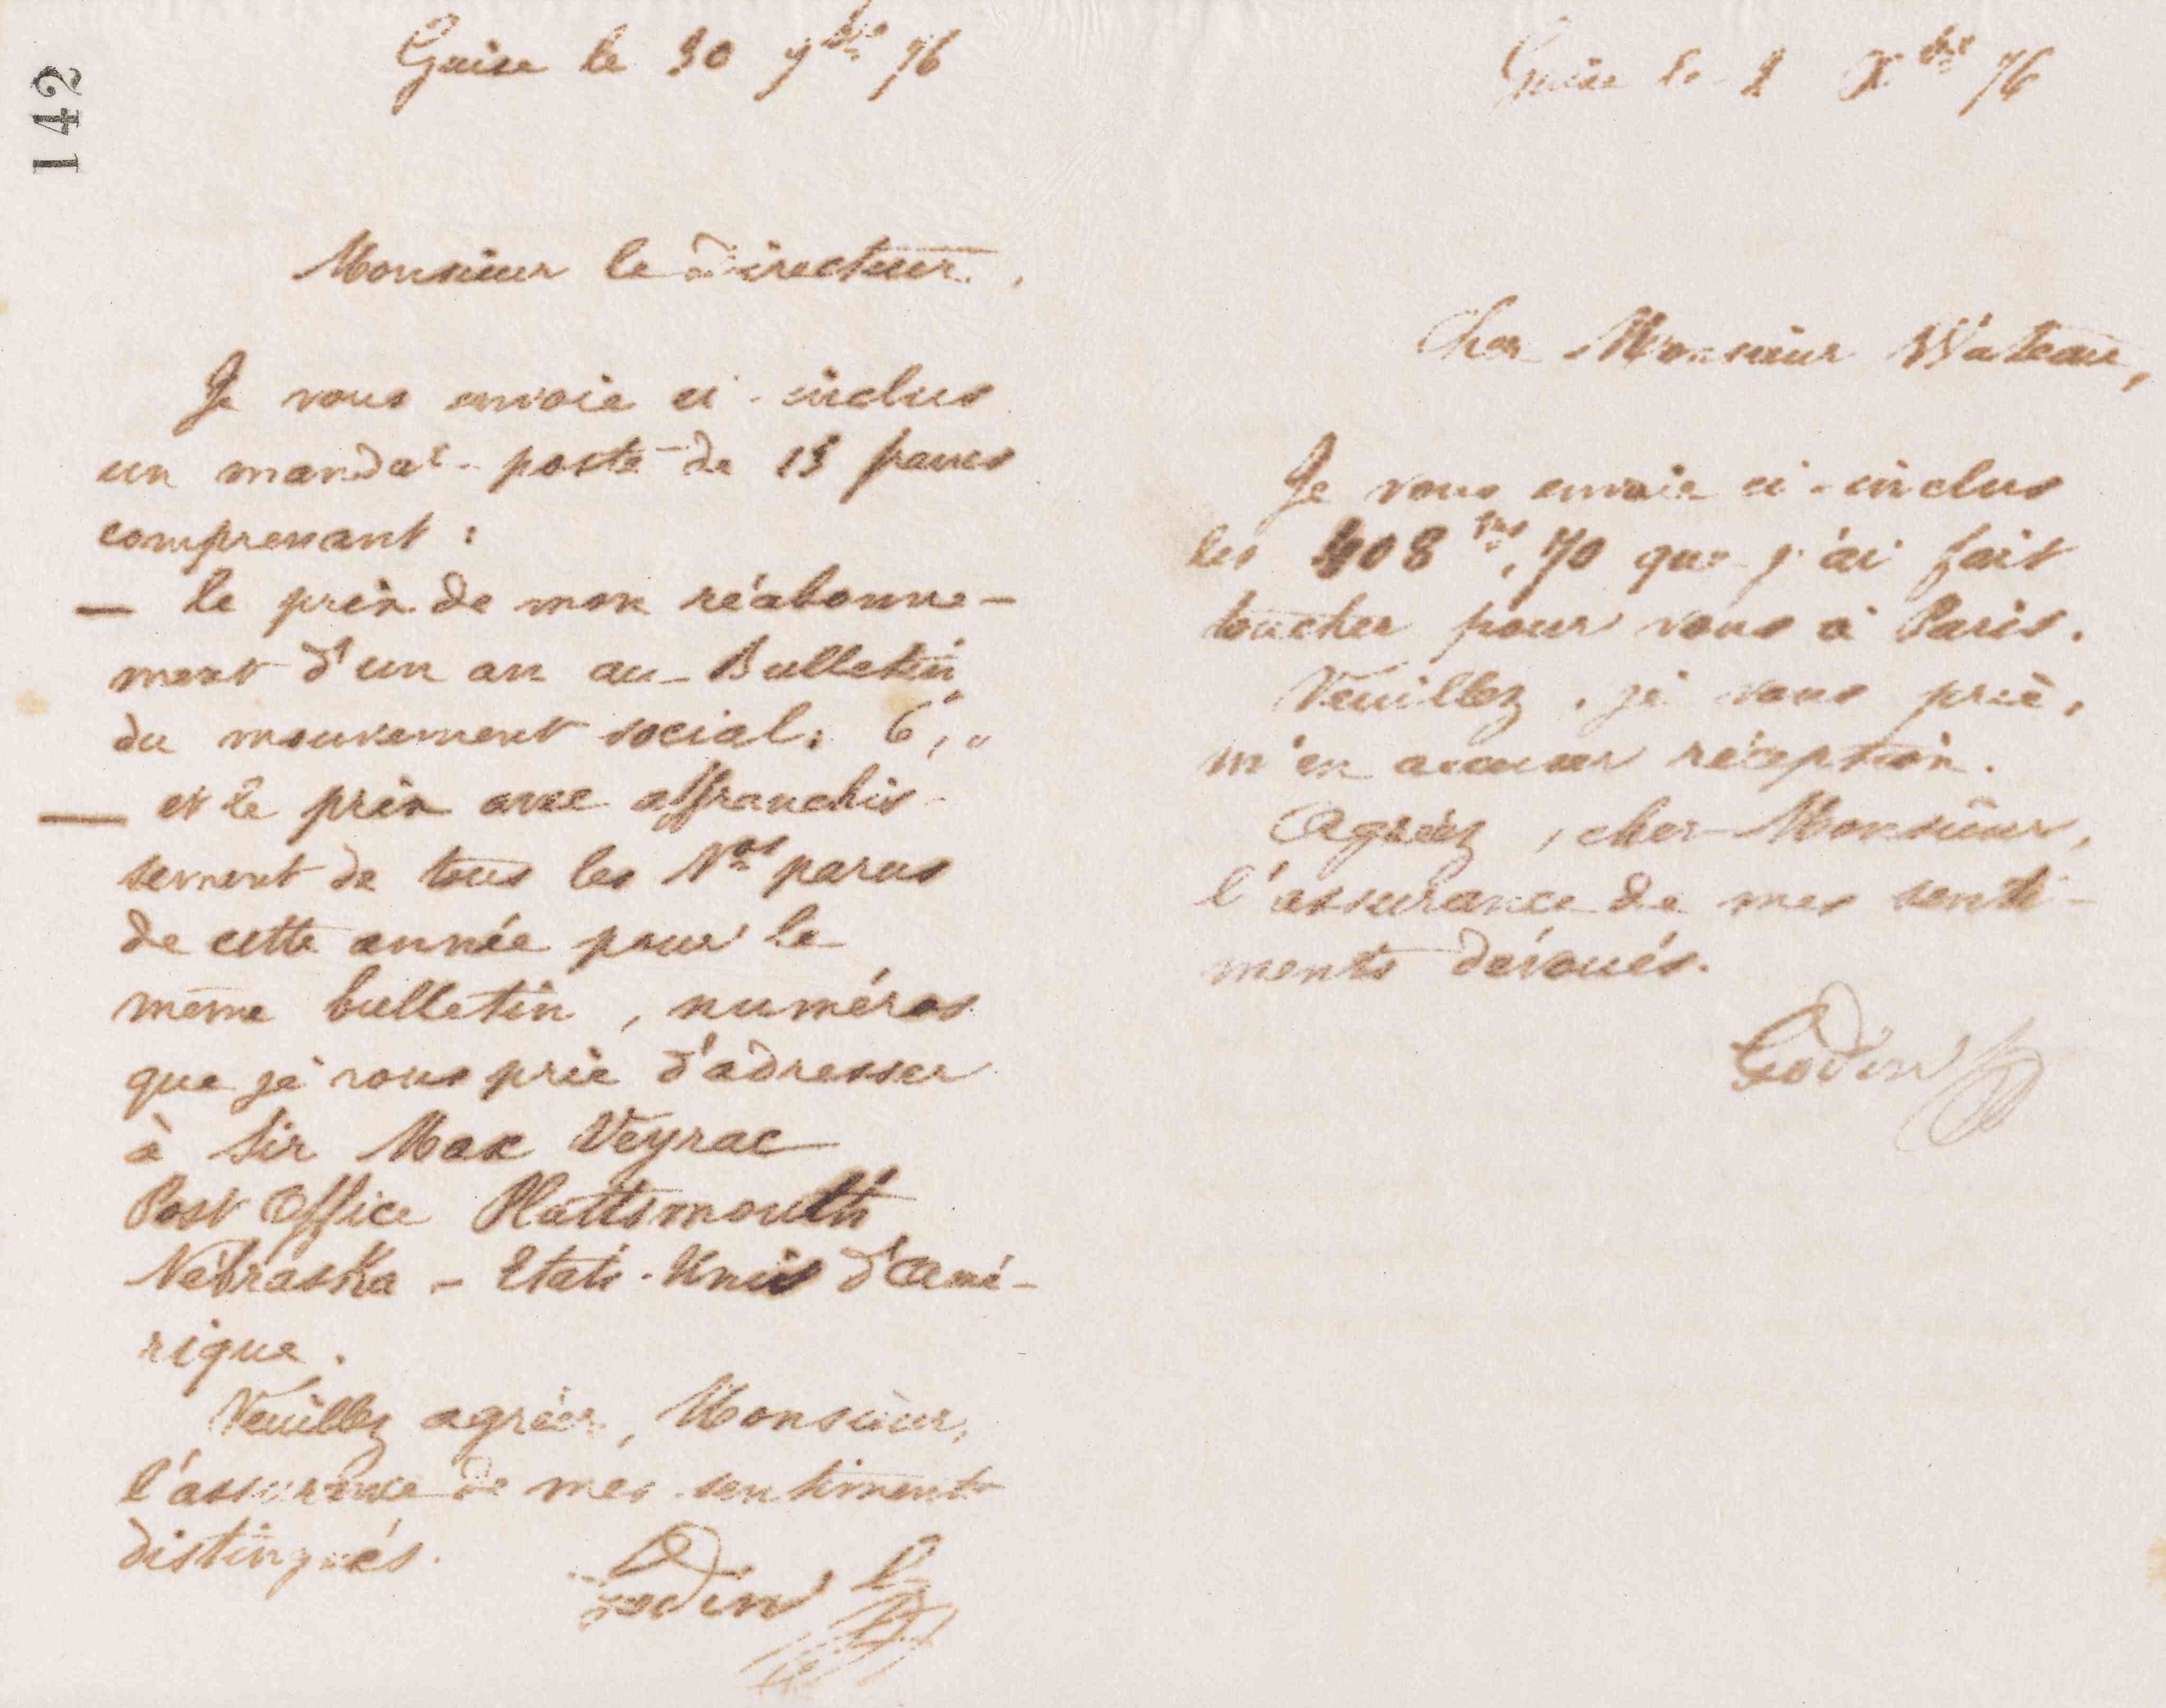 142
Guise le 30 9bre 76
Monsieur le Directeur,
Je vous envoie ci-inclus
un mandat-poste de 15 francs
comprenant :
— le prix de mon réabonne-
ment d'un an au Bulletin
du mouvement social : 6,"
— et le prix avec affranchis-
sement de tous les Nos parus
de cette année pour le
même bulletin, numéros
que je vous prie d'adresser
à Sir Max Veyrac
Post Office Plattsmouth
Nebraska – Etats-Unis d'Amé-
rique.
Veuillez agréer, Monsieur,
l'assurance de mes sentiments
distingués.
Godin
Guise le Xbre 76
Cher Monsieur Wateau,
Je vous envoie ci-inclus
les 408 frs,70 que j'ai fait
toucher pour vous à Paris.
Veuillez, je vous prie,
m'en accuser réception.
Agréez, cher Monsieur,
l'assurance de mes senti-
ments dévoués.
Godin